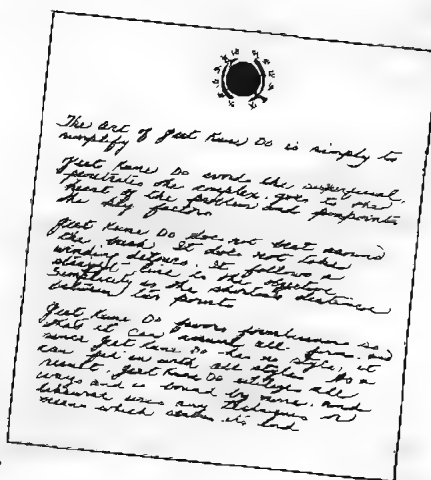 The art of Jeet Kune Do is simply to
simplify
Jeet Kune Do avoids the superficial,
penetrates the complex, goes to the
heart of the problem and pinpoints
the key factors
Jeet Kune Do does not beat around
the bush. It does not take
winding detours. It follows a
straight line to the objective.
Simplicity is the shortest distance
between two points
Jeet Kune Do favors formlessness so
that it can assume all forms and
since Jeet Kune Do has no style, it
can fit in with all styles. As a
result, Jeet Kune Do utilizes all
ways and is bound by none, and
likewise uses any techniques or
means which serves its end